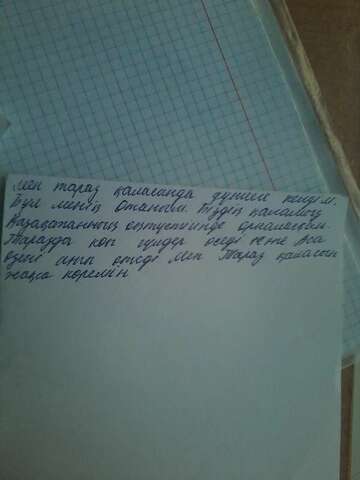 Мен тараз қаласанда дүниеге келдім.
Бұл менің Отаным. Біздің қаламыз
Қазақстанның оңтүстігінде орналасқан.
Таразда көп гүлдер өседі және Аса
өзені ағып өтеді Мен Тараз қаласын
жақсы көремін